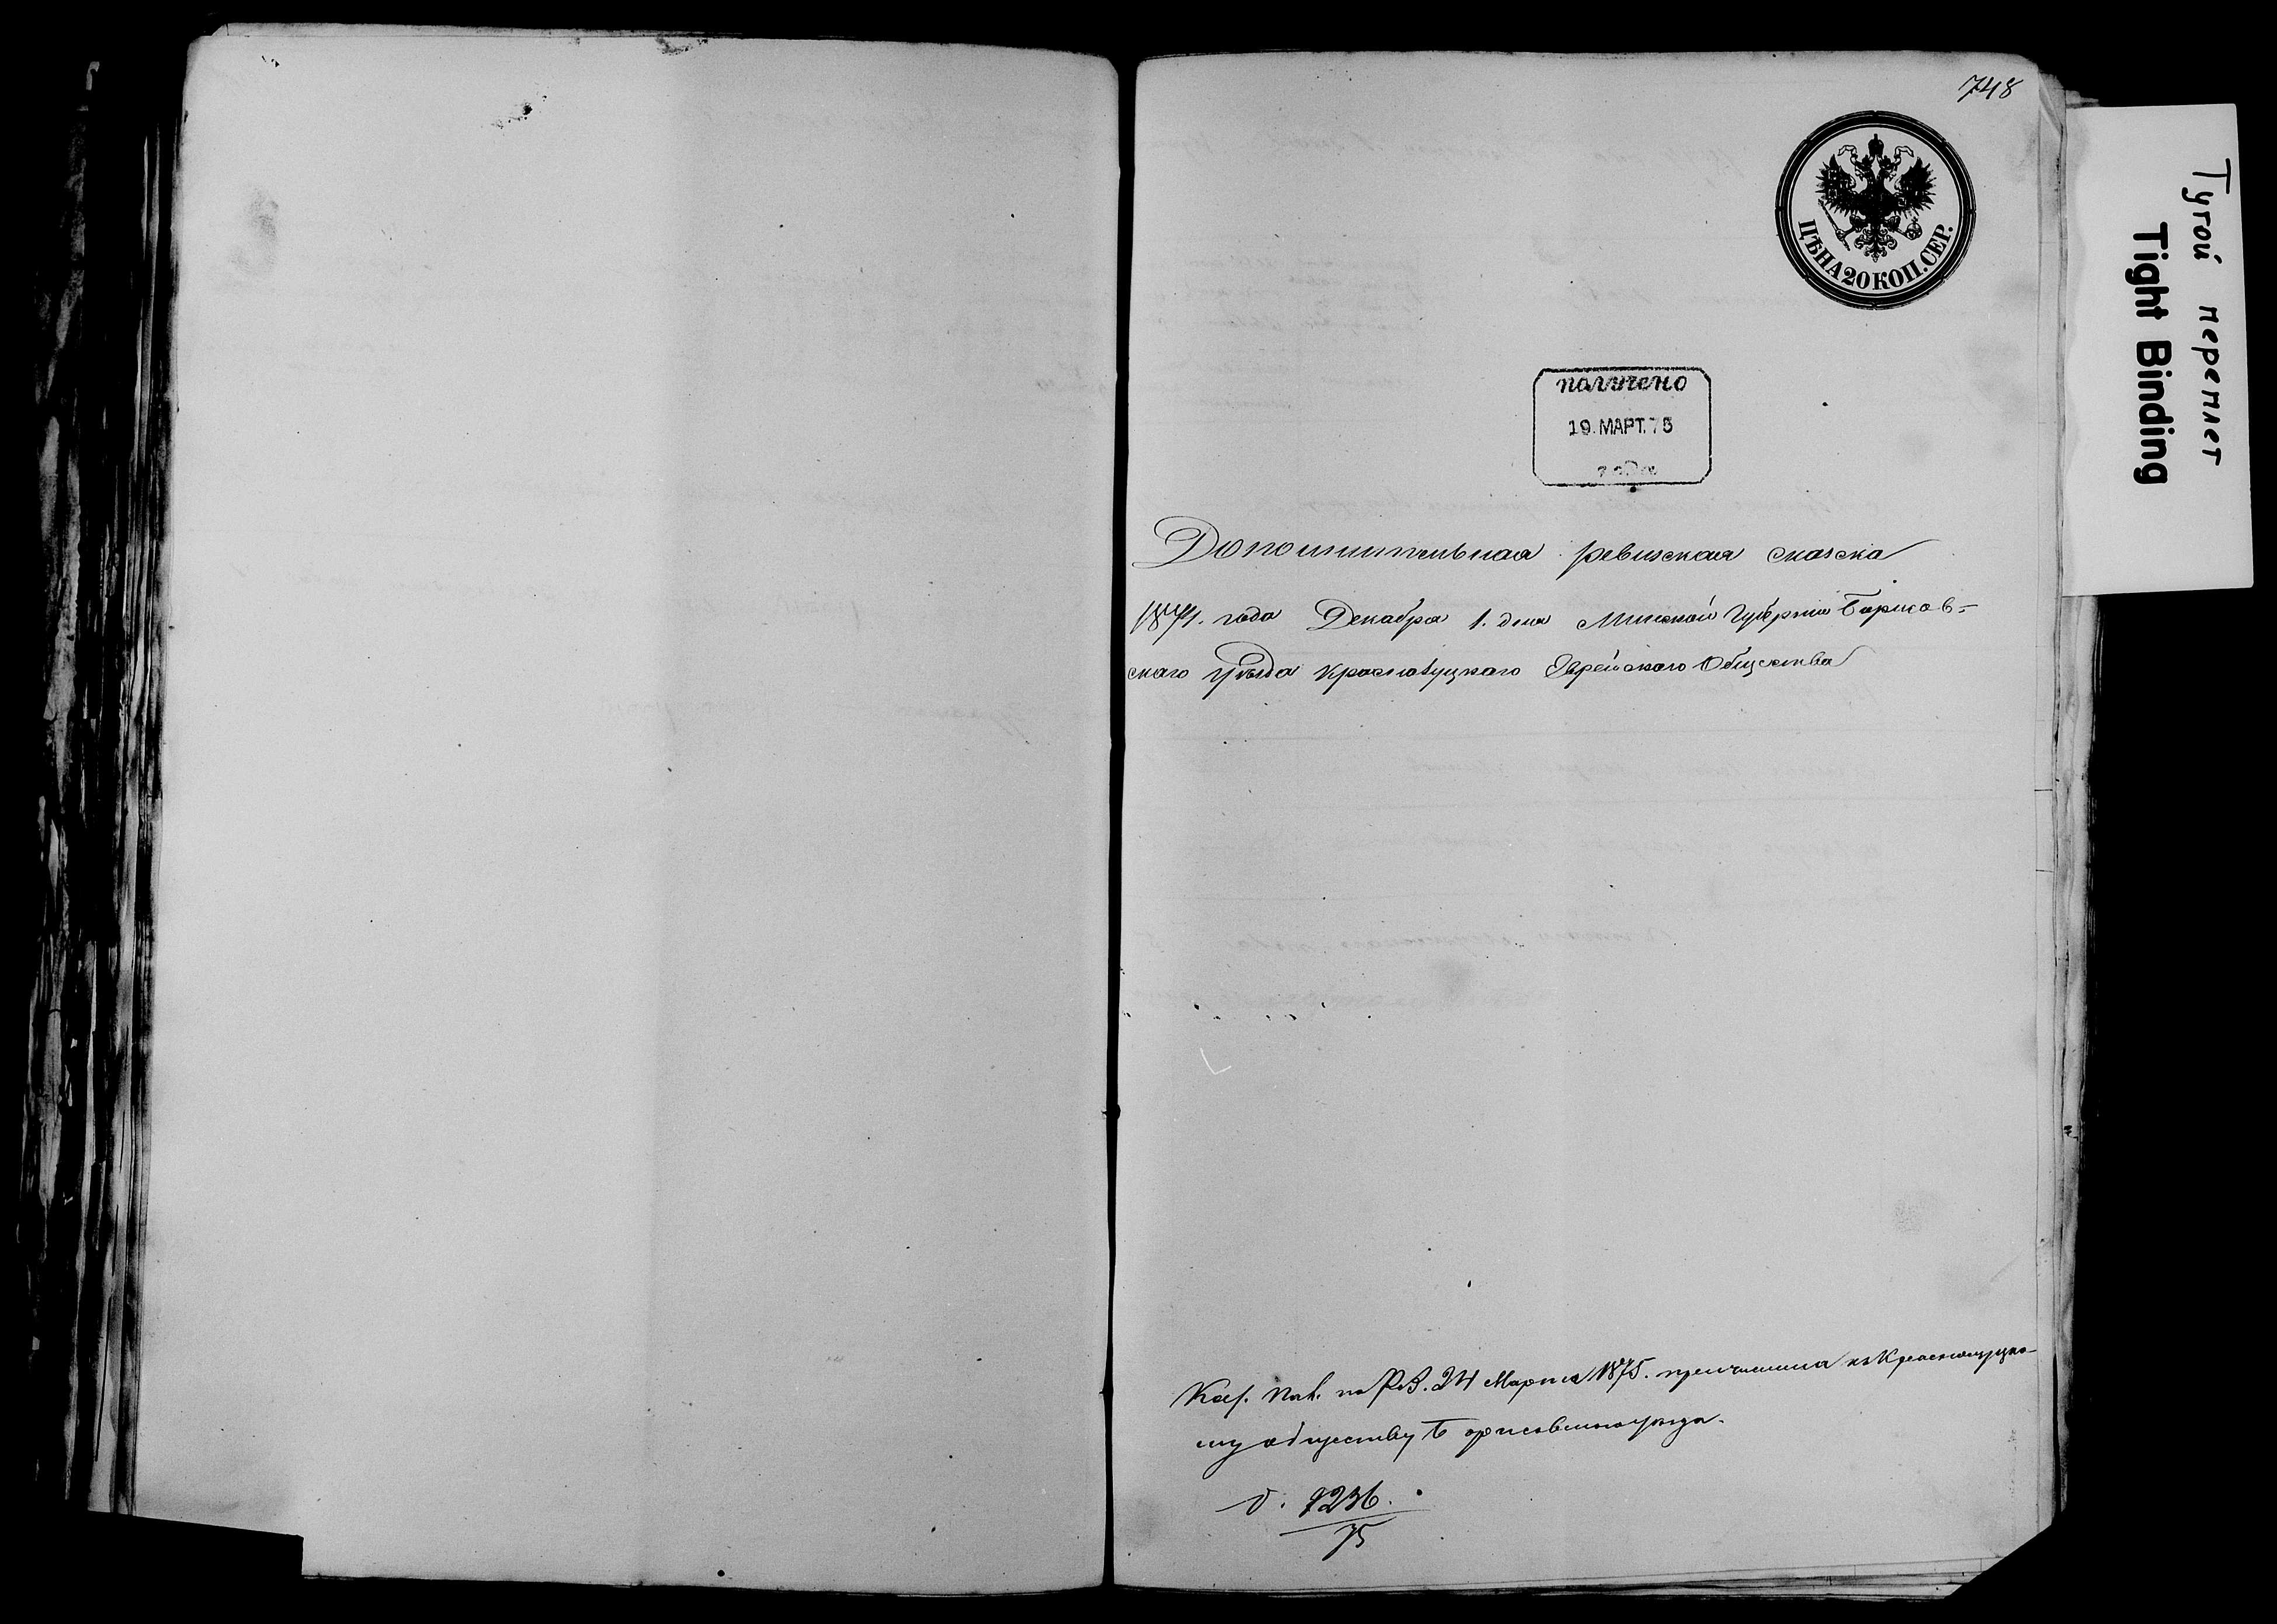 748
ЦѢНА 20 КОП. СЕР.
Тугой переплет
Tight Binding
получено
19. МАРТ. 75
Дополнительная ревизская сказка
1874. года Декабря 1. дня Минской Губерніи Борисов=
скаго уѣзда Краснолуцкаго Еврейскаго Общества
Каз. Пал. по Р.В. 24 Марта 1875. причислена къ Краснолуцко-
му обществу Борисовскаго уѣзда.
д. 1236.
75